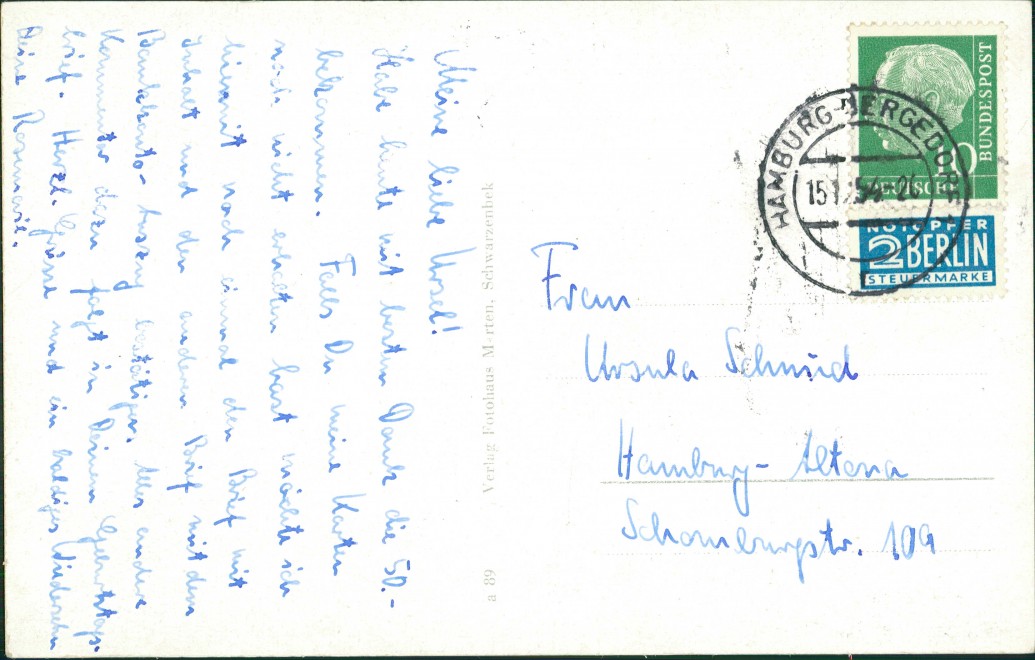 Meine liebe Ursel!
Habe heute mit bestem Dank die 50.-
bekommen. Falls Du meine Karten
noch nicht erhalten hast möchte ich
hiermit noch einmal den Brief mit
Inhalt und den anderen Brief mit dem
Bankkonto- bestätigen. Alles andere
Kommentar dazu folgt in Deinem Geburtstags-
brief. Herzl. Grüsse und ein baldiges Wiedersehn
Deine Rosmarie.
Verlag Fotohaus Marten, Schwarzenbek
a 89
BUNDESPOST
DEUTSCHE
HAMBURG-BERGEDORF
NOTOPFER
2 BERLIN
STEUERMARKE
Frau
Ursula Schmid
Hamburg- Altona
Schomburgstr. 109